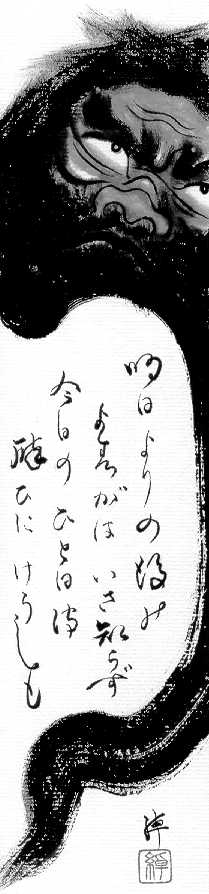 明日よりの後の
よすがはいさ知らず
今日のひと日は
酔ひにけらしも